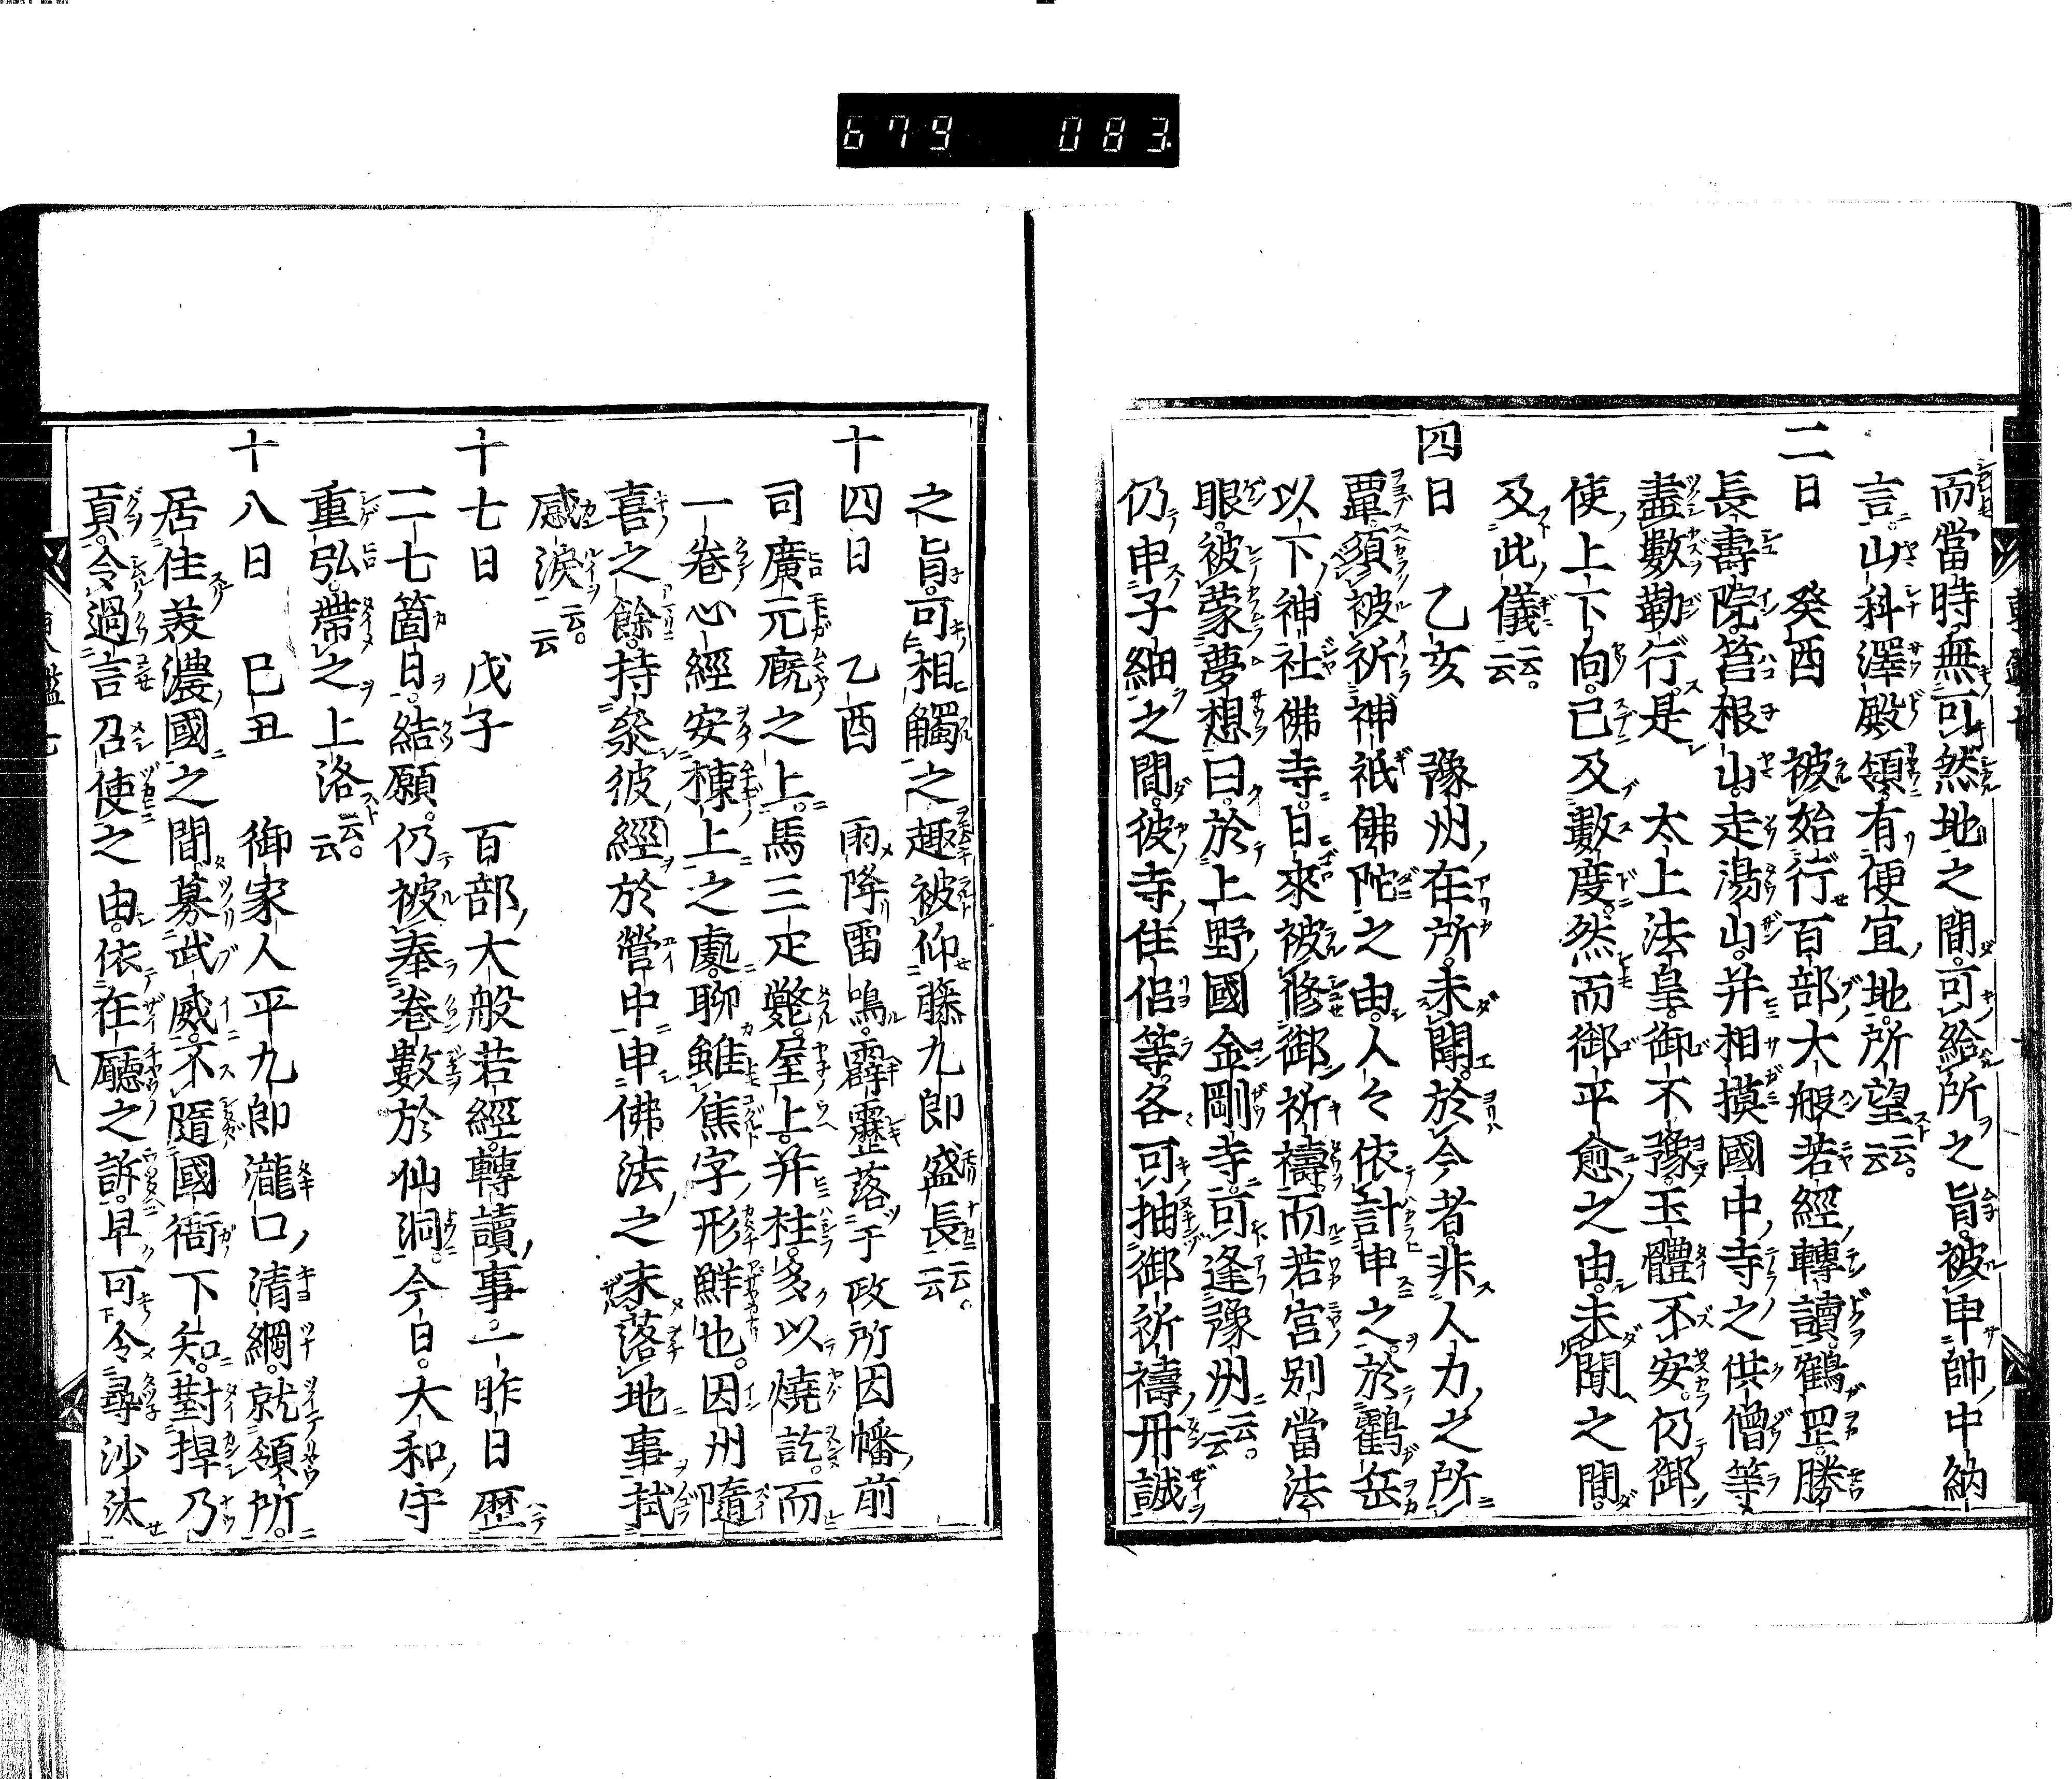 679 083
而當時無可然地之間。可給所之旨。被申帥中納
言。山科澤殿領。有便宜地。所望云云。
二日 癸酉 被始行百部大般若經轉讀。鶴岡。勝
長壽院。筥根山。走湯山。并相摸國中寺之供僧等
盡數勤行。是 太上法皇御不豫。玉體不安。仍御
使上下向。已及數度。然而御平愈之由。未聞之間。
及此儀云云。
四日 乙亥 豫州在所。未聞。於今者。非人力之所
覃。須被祈神祇佛陀之由。人々依計申之。於鶴岳
以下神社佛寺。日來被修御祈禱。而若宮別當法
眼。被蒙夢想曰。於上野國金剛寺。可逢豫州云云。
仍申子細之間。彼寺住侶等。各可抽御祈禱丹誠
之旨。可相觸之趣。被仰藤九郎盛長云云。
十四日 乙酉 雨降雷鳴。霹靂落于政所因幡前
司廣元廐之上。馬三疋斃。屋上。并柱。多以燒訖。而
一卷心經安棟上之處。聊雖焦字形鮮也。因州隨
喜之餘。持參彼經於營中。申佛法之未落地事。拭
感淚云云。
十七日 戊子 百部大般若經。轉讀事。一昨日歷
二七箇日。結願。仍被奉卷數於仙洞。今日。大和守
重弘。帶之上洛云云。
十八日 己丑 御家人平九郎瀧口清綱。就領所。
居住美濃國之間。募武威。不隨國衙下知。對捍乃
貢。令過言召使之由。依在廳之訴。早可令尋沙汰